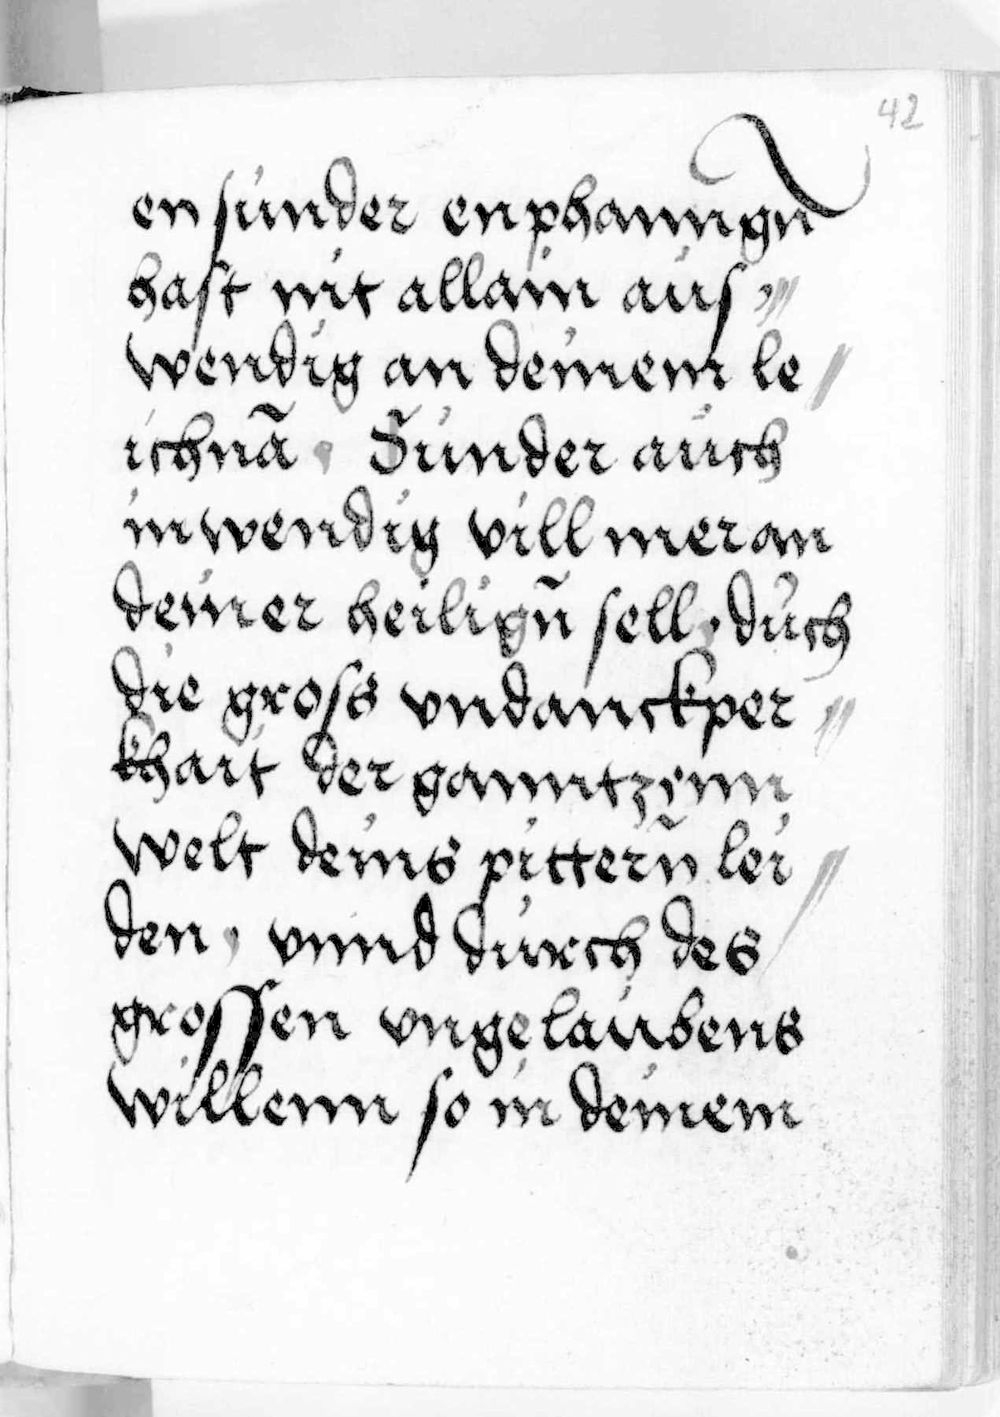 42
en sunder enphanngn̄
hast nit allain aus //
wendig an deinem le //
ichnā . Sunder auch
inwendig vill mer an
deiner heilign̄ sell . duch
die gross vndanckper //
khait der ganntzynn
welt deins pittern̄ lei //
den , vnnd durch des
grossen vngelaubens
willenn so in deinem